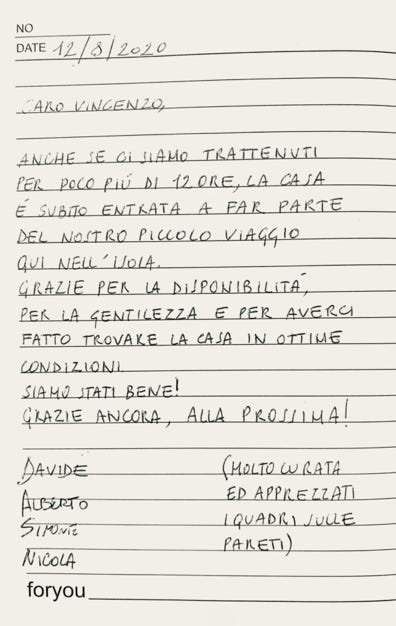 NO
DATE 12/8/2020
CARO VINCENZO,
ANCHE SE CI SIAMO TRATTENUTI
PER POCO PIÚ DI 12 ORE, LA CASA
É SUBITO ENTRATA A FAR PARTE
DEL NOSTRO PICCOLO VIAGGIO
QUI NELL'ISOLA.
GRAZIE PER LA DISPONIBILITÁ,
PER LA GENTILEZZA E PER AVERCI
FATTO TROVARE LA CASA IN OTTIME
CONDIZIONI
SIAMO STATI BENE!
GRAZIE ANCORA, ALLA PROSSIMA!
DAVIDE
ALBERTO
SIMONE
NICOLA
(MOLTO CURATA
ED APPREZZATI
I QUADRI SULLE
PARETI)
foryou